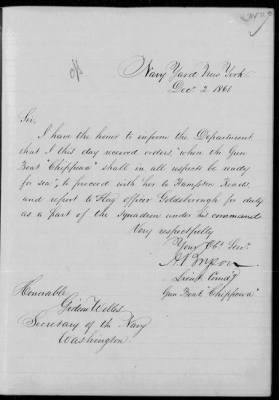 Navy Yard New York
Decr 2 1861
Sir,
I have the honor to inform the Department
that I this day received orders, "when the Gun
Boat "Chippewa" shall in all respects be ready
for sea", to proceed with her to Hampton Roads,
and report to Flag officer Goldsborough for duty
as a part of the Squadron under his command
Very respectfully
Your Obt Servt
A Bryson
Lieut. Comdg
Gun Boat "Chippewa"
Honorable
Gideon Welles
Secretary of the Navy
Washington